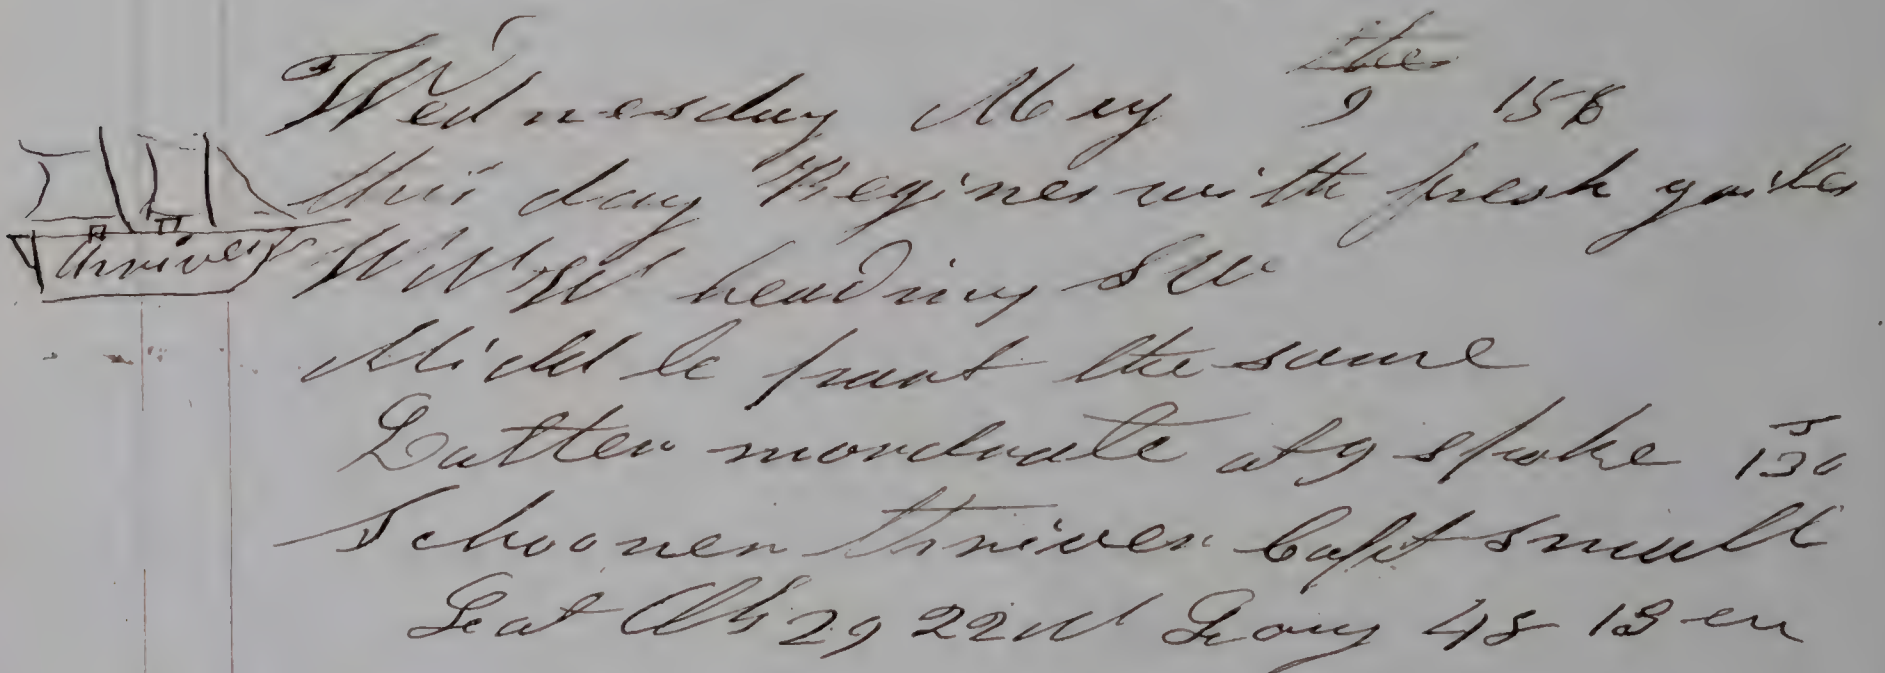 Wednesday May the 9 158
this day Begines with fresh gailes
thriver
WNW heading SW
Middle paart the same
Latter mordrate at 9 spoke
Schooner thriver Capt small
Lat 29 22 N Long 48 13